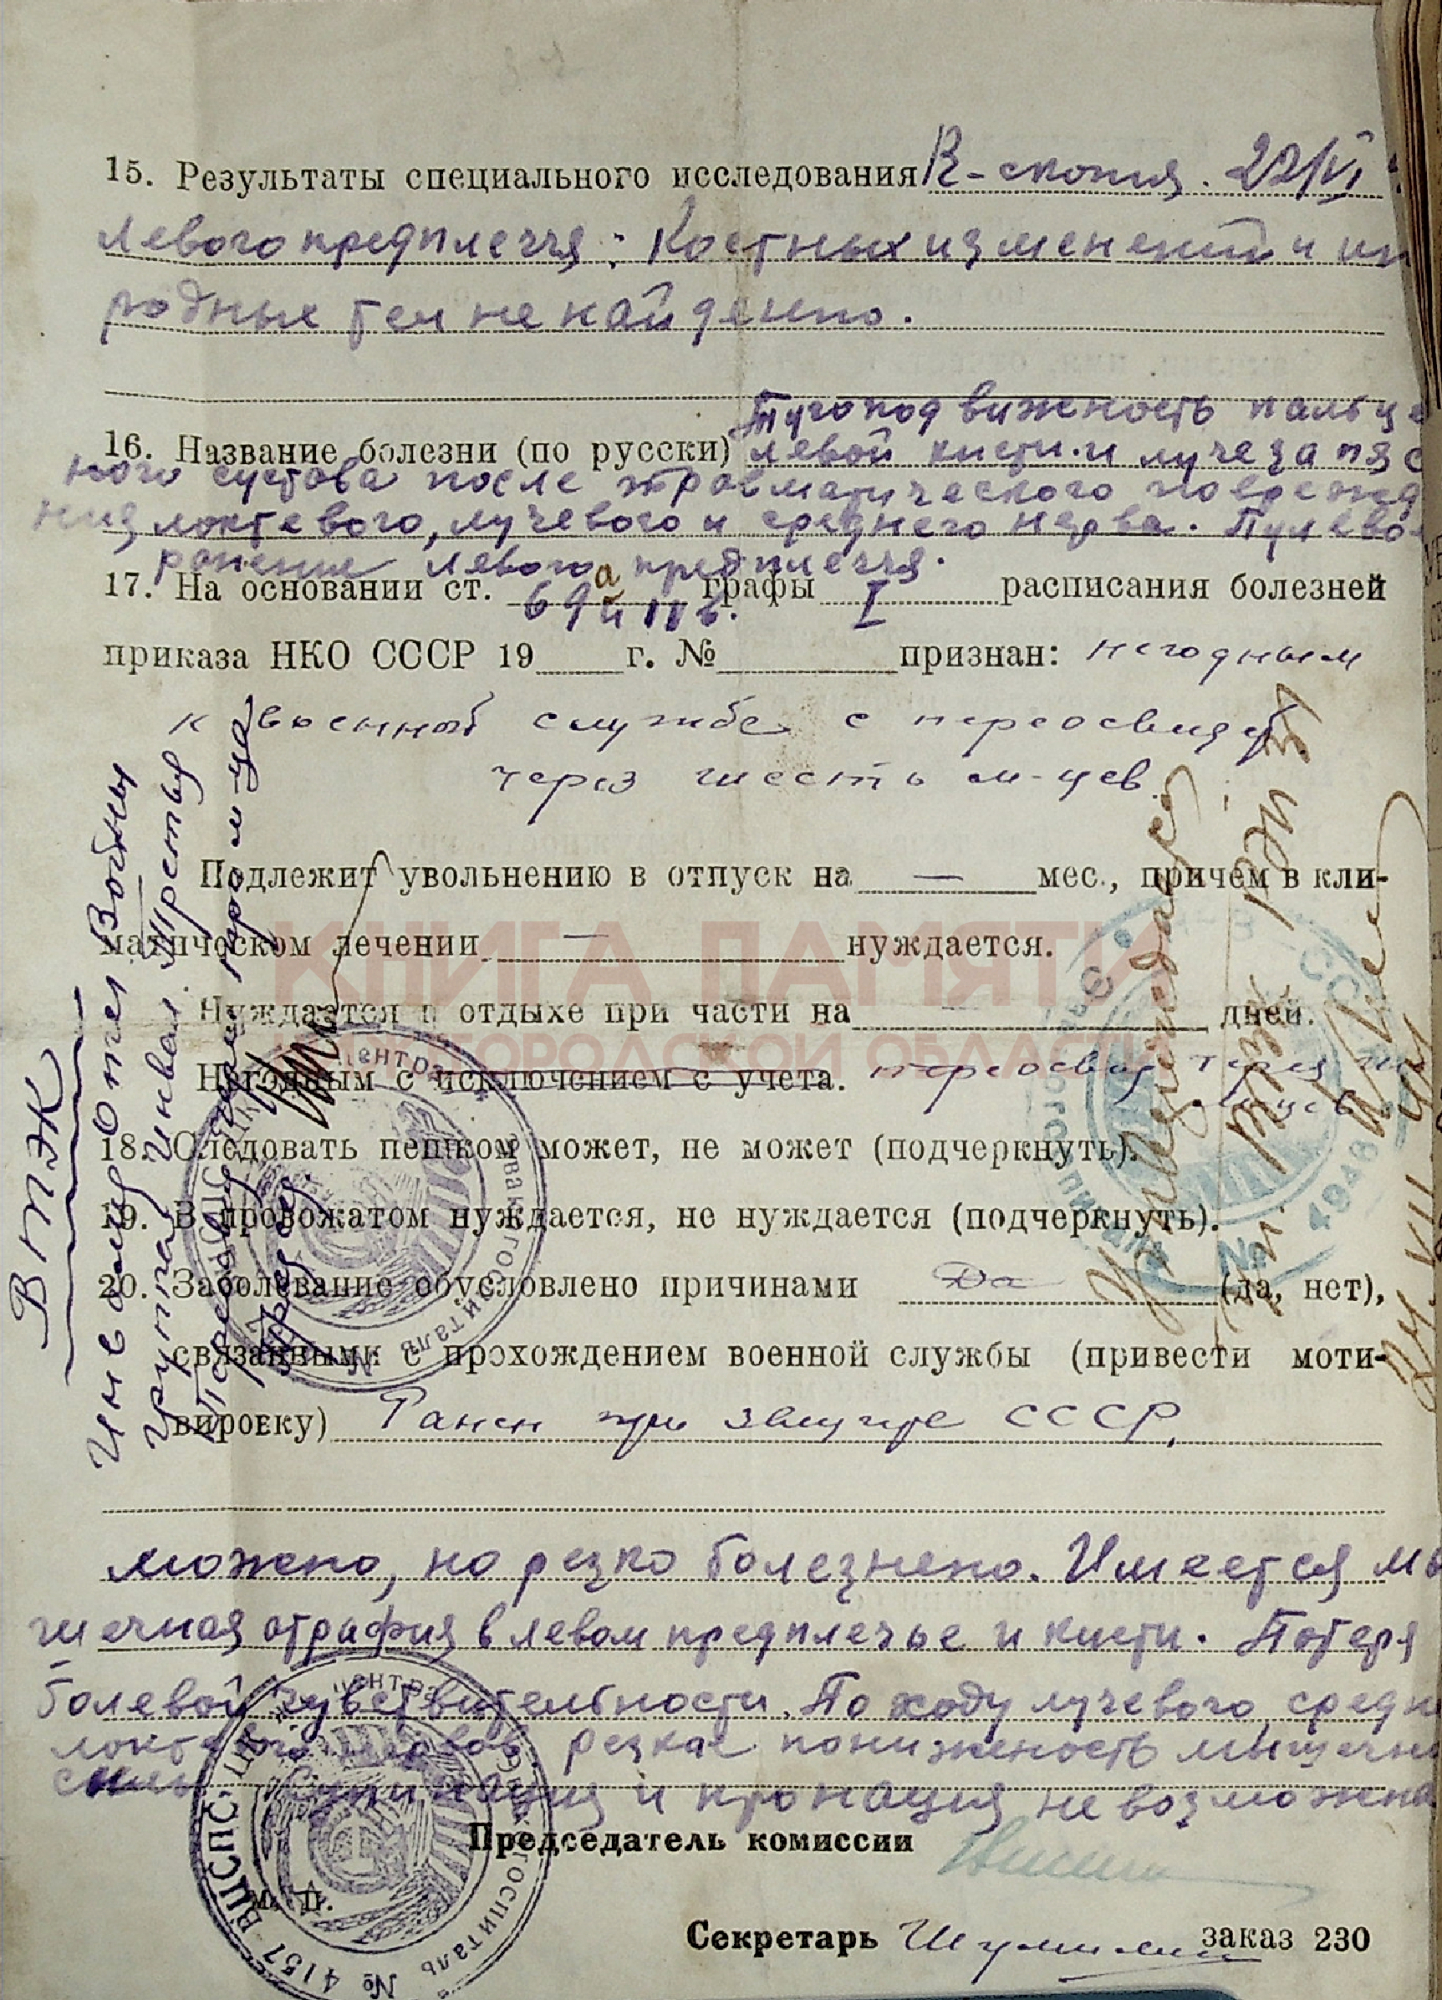 15. Результаты специального исследования R-скопия. 22/VI
левого предплечья: Костных изменений и ин
родных тел не найдено.
Тугоподвижность пальце
16. Название болезни (по русски) левой кисти и лучезапяс
ного сустава после травматического поврежд
ния локтевого, лучевого и среднего нерва. Пулевое
ранение левого предплечья.
17. На основании ст. 69а и 11б. графы I расписания болезней
приказа НКО СССР 19 г. № признан: негодным
к военной службе с переосвидет
через шесть м-цев.
Подлежит увольнению в отпуск на — мес., причем в кли-
матическом лечении — нуждается.
Нуждается в отдыхе при части на — дней.
Негодным с исключением с учета. переосвид через
м-цев
18. Следовать пешком может, не может (подчеркнуть).
19. В провожатом нуждается, не нуждается (подчеркнуть).
20. Заболевание обусловлено причинами Да (да, нет),
связанными с прохождением военной службы (привести моти-
вировку) Ранен при защите СССР.
можно, но резко болезнено. Имеется мы
шечная атрофия в левом предплечье и кисти. Потеря
болевой чувствительности. По ходу лучевого, средне
локтевого нервов резкая пониженость мышечн
силы Супинация и пронация невозможна
Председатель комиссии
М. П.
Секретарь Шумилин заказ 230
ВТЭК
Инвалид Отеч Войны
группа инвал. Третья
КНИГА ПАМЯТИ
НИЖЕГОРОДСКОЙ ОБЛАСТИ
ВЦСПС ЦК центра Эвакогоспиталь № 4157
№ 4946